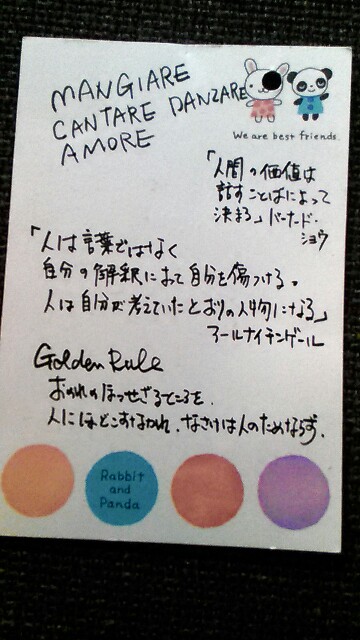 MANGIARE
CANTARE DANZARE
AMORE
We are best friends.
「人間の価値は
話すことばによって
決まる」バーナード・
ショウ
「人は言葉ではなく
自分の解釈によって自分を傷つける。
人は自分が考えていたとおりの人物になる」
アールナイチンゲール
Golden Rule
おのれのほっせざるところを、
人にほどこすなかれ、なさけは人のためならず、
Rabbit
and
Panda